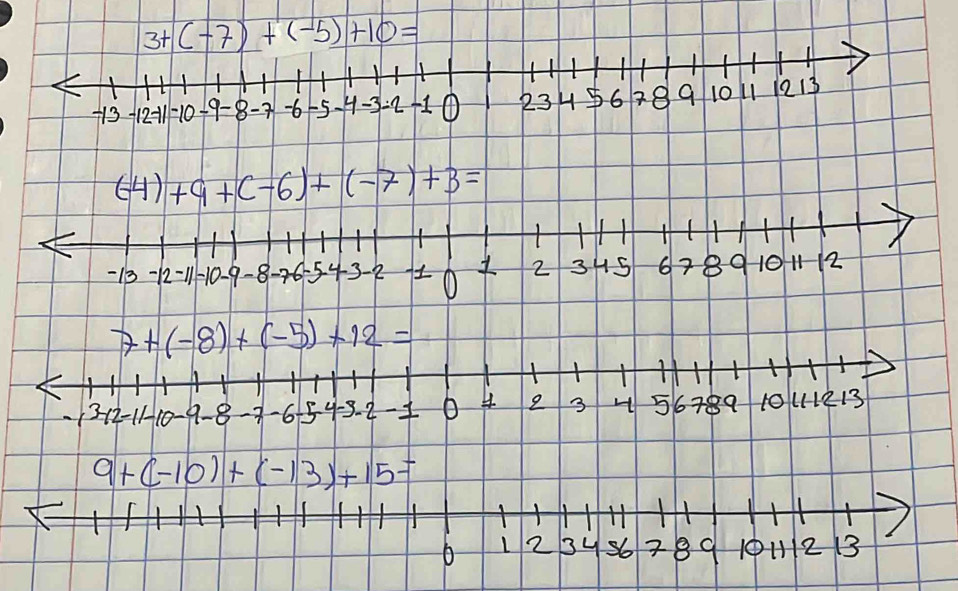 3+(-7) + (-5)+10=
-13 -12 -11 -10 -9 -8 -7 -6 -5 -4 -3 -2 -1 0 1 2 3 4 5 6 7 8 9 10 11 12 13
(-4)+9+(-6)+(-7)+3=
-13 -12 -11 -10 -9 -8 -7 -6 -5 -4 -3 -2 -1 0 1 2 3 4 5 6 7 8 9 10 11 12
7+(-8)+(-5)+12=
-13 -12 -11 -10 -9 -8 -7 -6 -5 -4 -3 -2 -1 0 1 2 3 4 5 6 7 8 9 10 11 12 13
9+(-10)+(-13)+15=
0 1 2 3 4 5 6 7 8 9 10 11 12 13